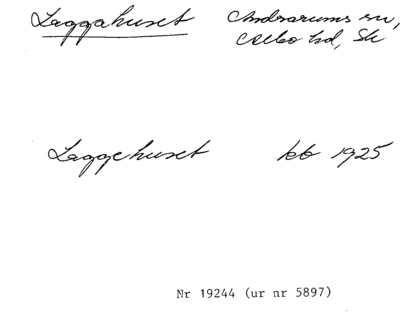 Laggahuset Andrarums sn,
Albo hd, Sk
Laggehuset kb 1925
Nr 19244 (ur nr 5897)